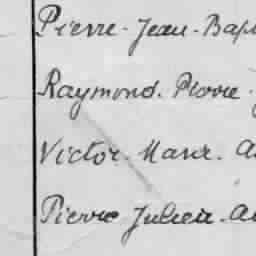 Pierre-Jean-Bap
Raymond-Pierre-
Victor-Marc-A
Pierre Julien-Au